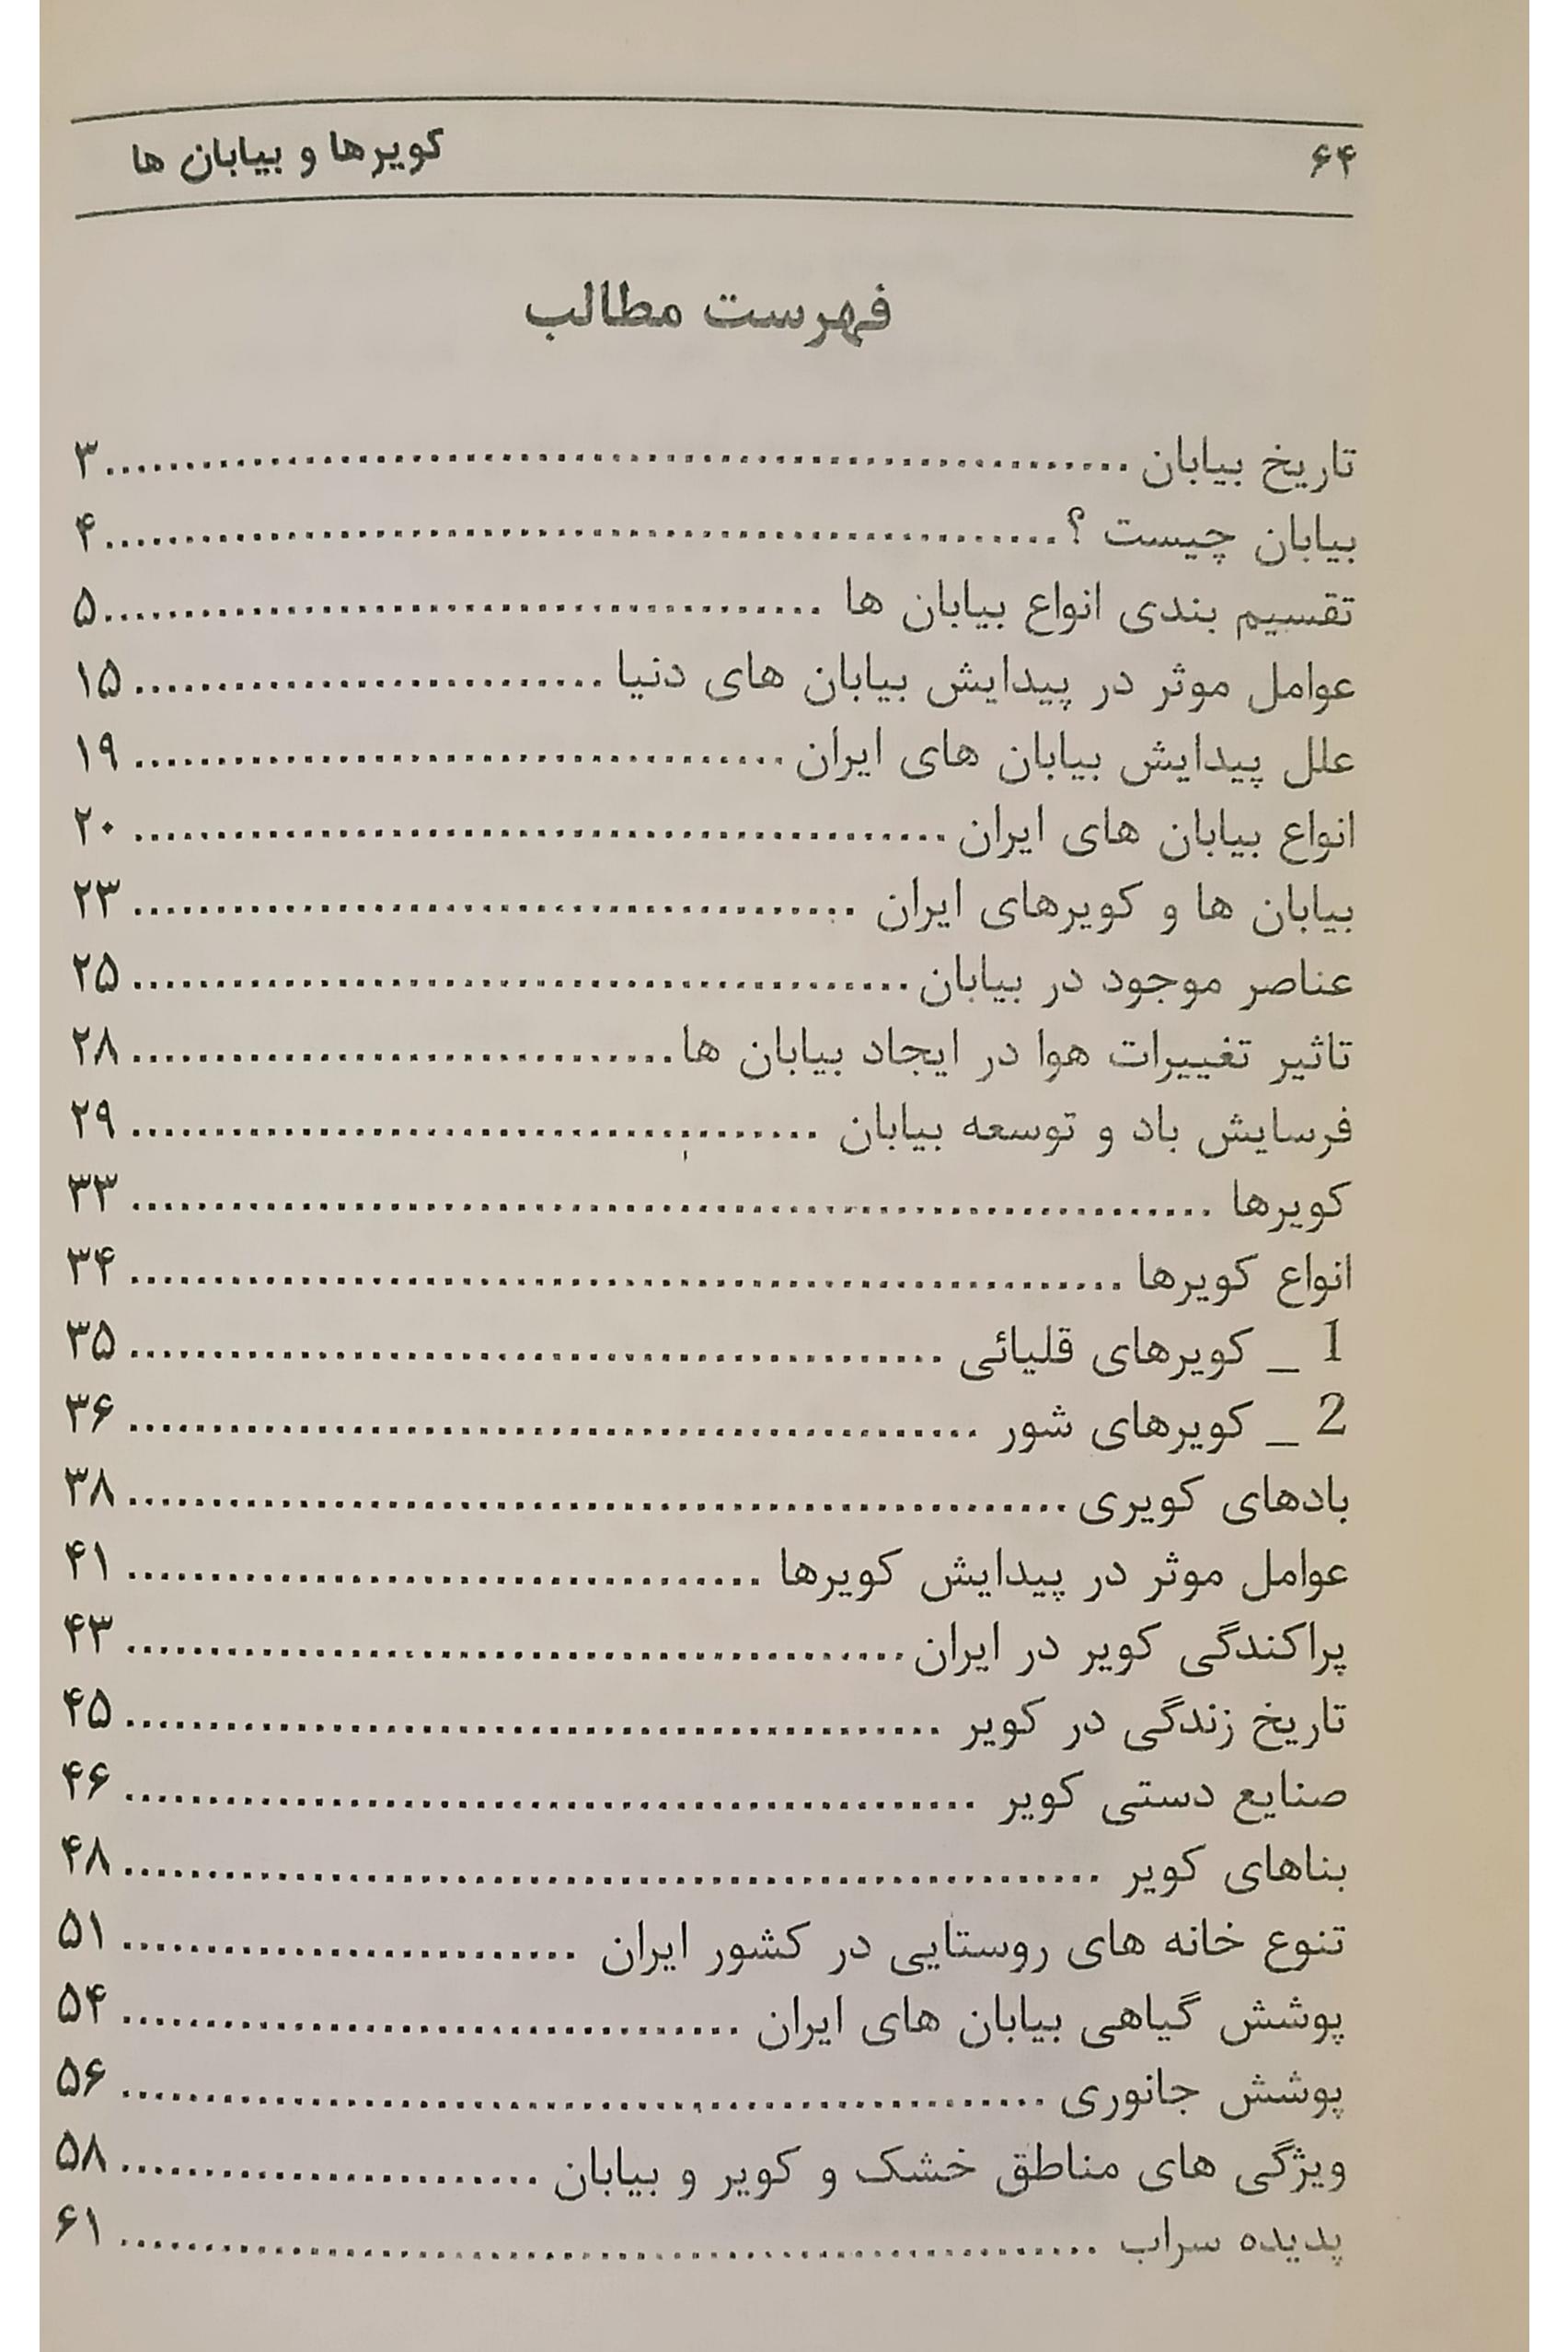 ۶۴ کویرها و بیابان ها
فهرست مطالب
تاریخ بیابان ........ ۳
بیابان چیست ؟ ........ ۴
تقسیم بندی انواع بیابان ها ........ ۵
عوامل موثر در پیدایش بیابان های دنیا ........ ۱۵
علل پیدایش بیابان های ایران ........ ۱۹
انواع بیابان های ایران ........ ۲۰
بیابان ها و کویرهای ایران ........ ۲۳
عناصر موجود در بیابان ........ ۲۵
تاثیر تغییرات هوا در ایجاد بیابان ها ........ ۲۸
فرسایش باد و توسعه بیابان ........ ۲۹
کویرها ........ ۳۳
انواع کویرها ........ ۳۴
1 _ کویرهای قلیائی ........ ۳۵
2 _ کویرهای شور ........ ۳۶
بادهای کویری ........ ۳۸
عوامل موثر در پیدایش کویرها ........ ۴۱
پراکندگی کویر در ایران ........ ۴۳
تاریخ زندگی در کویر ........ ۴۵
صنایع دستی کویر ........ ۴۶
بناهای کویر ........ ۴۸
تنوع خانه های روستایی در کشور ایران ........ ۵۱
پوشش گیاهی بیابان های ایران ........ ۵۴
پوشش جانوری ........ ۵۶
ویژگی های مناطق خشک و کویر و بیابان ........ ۵۸
پدیده سراب ........ ۶۱